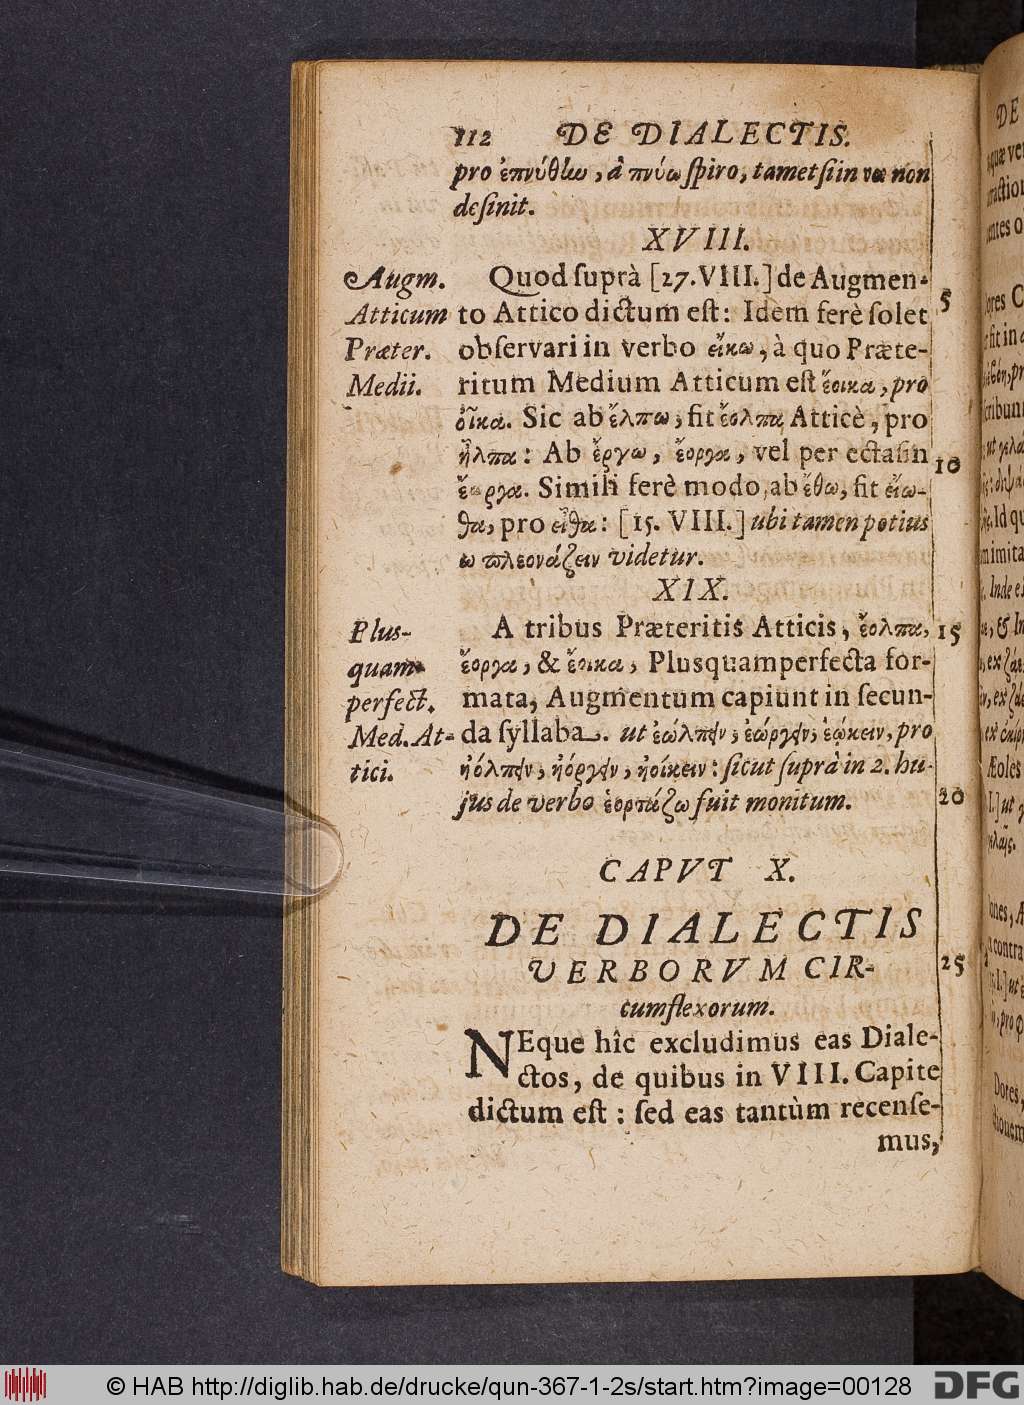 112 DE DIALECTIS.
pro ἐπνύθην, à πνύω spiro, tametsi in νω non
desinit.
XVIII.
Augm.
Atticum
Præter.
Medii.
Quod suprà [27.VIII.] de Augmen-
to Attico dictum est: Idem ferè solet
observari in verbo εἴκω, à quo Præte-
ritum Medium Atticum est ἔοικα, pro
οἶκα. Sic ab ἔλπω, fit ἔολπα Atticè, pro
ἦλπα: Ab ἔργω, ἔοργα, vel per ectasin
Simili ferè modo, ab ἔθω, fit εἴω-
θα, pro εἶθα: [15. VIII.] ubi tamen potius
ω πλεονάζειν videtur.
XIX.
Plus-
quam-
perfect.
Med. At-
tici.
A tribus Præteritis Atticis, ἔολπα,
ἔοργα, & ἔοικα, Plusquamperfecta for-
mata, Augmentum capiunt in secun-
da syllaba. ut ἐώλπειν, ἐώργειν, ἐῴκειν, pro
ἠόλπειν, ἠόργειν, ἠοίκειν: sicut suprà in 2. hu-
jus de verbo ἑορτάζω fuit monitum.
5
10
15
20
25
CAPVT X.
DE DIALECTIS
VERBORVM CIR-
cumflexorum.
NEque hîc excludimus eas Diale-
ctos, de quibus in VIII. Capite
dictum est: sed eas tantùm recense-
mus,
© HAB http://diglib.hab.de/drucke/qun-367-1-2s/start.htm?image=00128
DFG